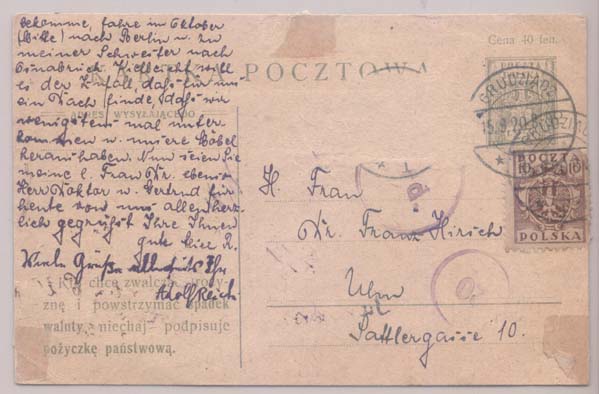 bekomme, fahre im Oktober
(Mitte) nach Berlin u. zu
meiner Schwester nach
Osnabrück. Vielleicht will
es der Zufall, daß für uns
ein Dach finde, daß wir
wenigstens mal unter-
kommen u. unsere Möbel
heranhaben. Nun seien Sie
meine l. Frau Dr. ebenso
Herr Doktor u. Gertrud für
heute von uns allen herz-
lich gegrüßt Ihre Ihnen
gute R.
Viele Grüße allerseits Ihr
Adolf
KARTKA POCZTOWA
ADRES WYSYŁAJĄCEGO
Kto chce zwalczać droży-
znę i powstrzymać spadek
waluty, niechaj podpisuje
pożyczkę państwową.
Cena 40 fen.
POCZTA
GRUDZIĄDZ
15.9.20
GRUDZIĄDZ
POCZTA
10 10
POLSKA
H. Frau
Dr. Franz Hirsch
Ulm
Sattlergasse 10.